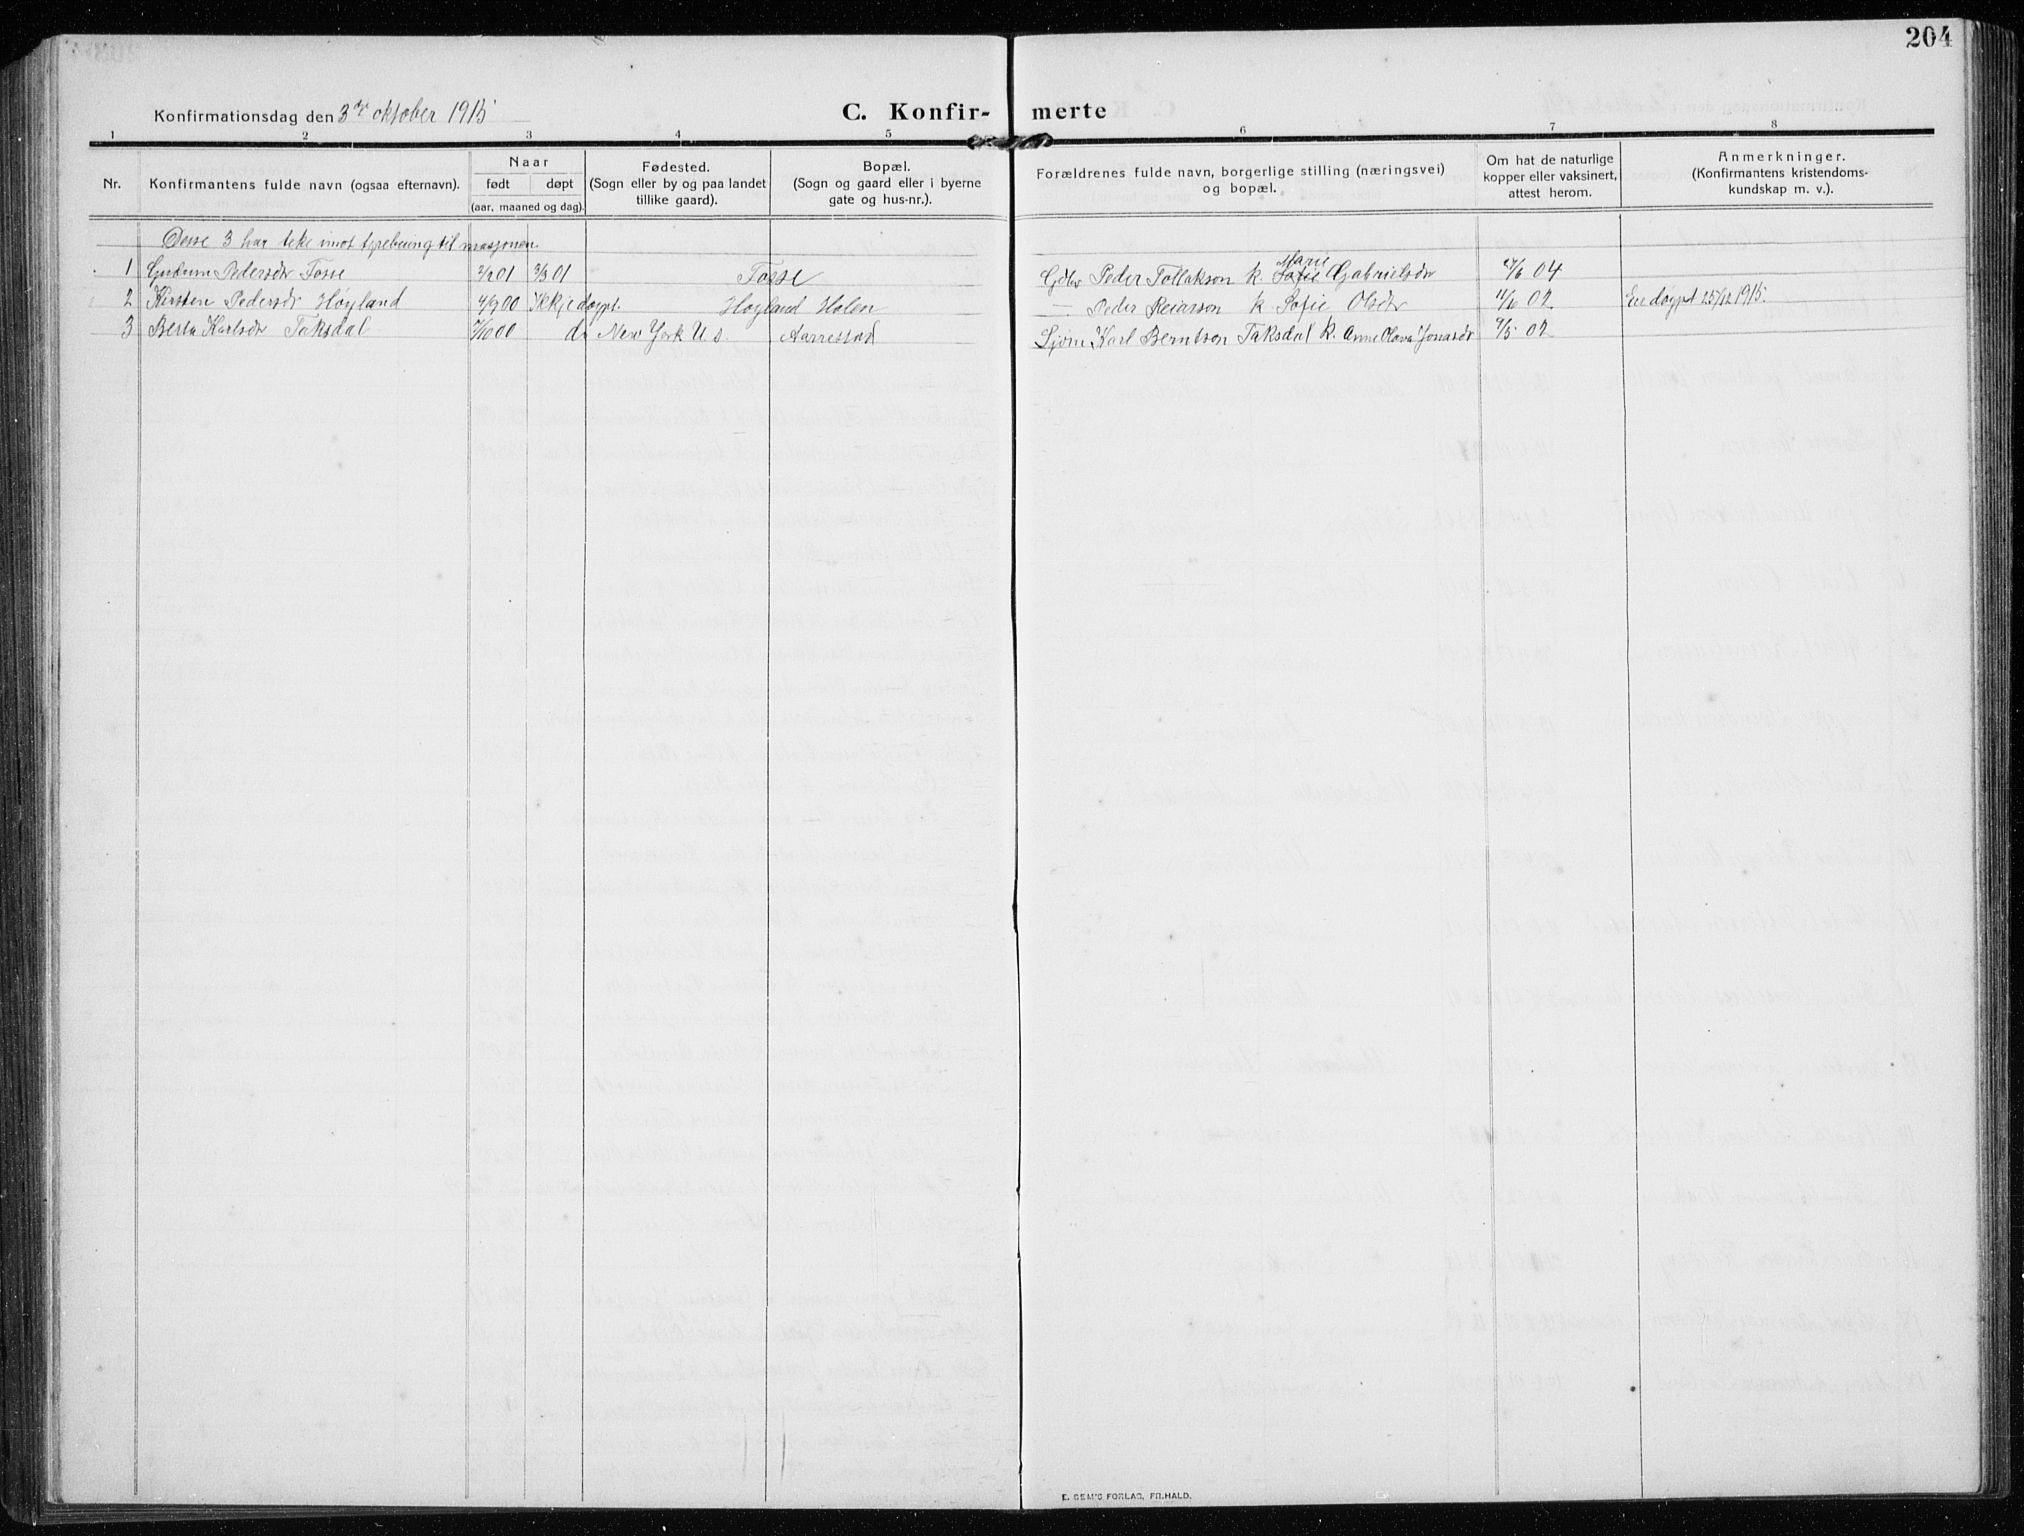 204
Konfirmationsdag den 3 oktober 1915
C. Konfir- merte
1 2 3 4 5 6 7 8
Nr.
Konfirmantens fulde navn (ogsaa efternavn).
Naar
født døpt
(aar, maaned og dag).
Fødested.
(Sogn eller by og paa landet
tillike gaard).
Bopæl.
(Sogn og gaard eller i byerne
gate og hus-nr.).
Forældrenes fulde navn, borgerlige stilling (næringsvei)
og bopæl.
Om hat de naturlige
kopper eller vaksinert,
attest herom.
Anmerkninger.
(Konfirmantens kristendoms-
kundskap m. v.).
Desse 3 har teke imot fyrebuing til
1 Pedersdr Fosse 01 3/3 01 Fosse Gdbr Peder Tollakson k. Marie Sofie Gabrielsdr 04
2 Kirsten Pedersdr Høyland 4/9 00 Ikkje døypt. Høyland Holen — Peder Reiarson k Sofie Olsdr 02 Er døypt 25/12 1915.
3 Berta Karlsdr Taksdal 00 do New York U.S. Aarrestad Sjøm. Karl Berntson Taksdal k. Anne Olava Jonasdr 9/5 02
E. SEM'S FORLAG, FR.HALD.